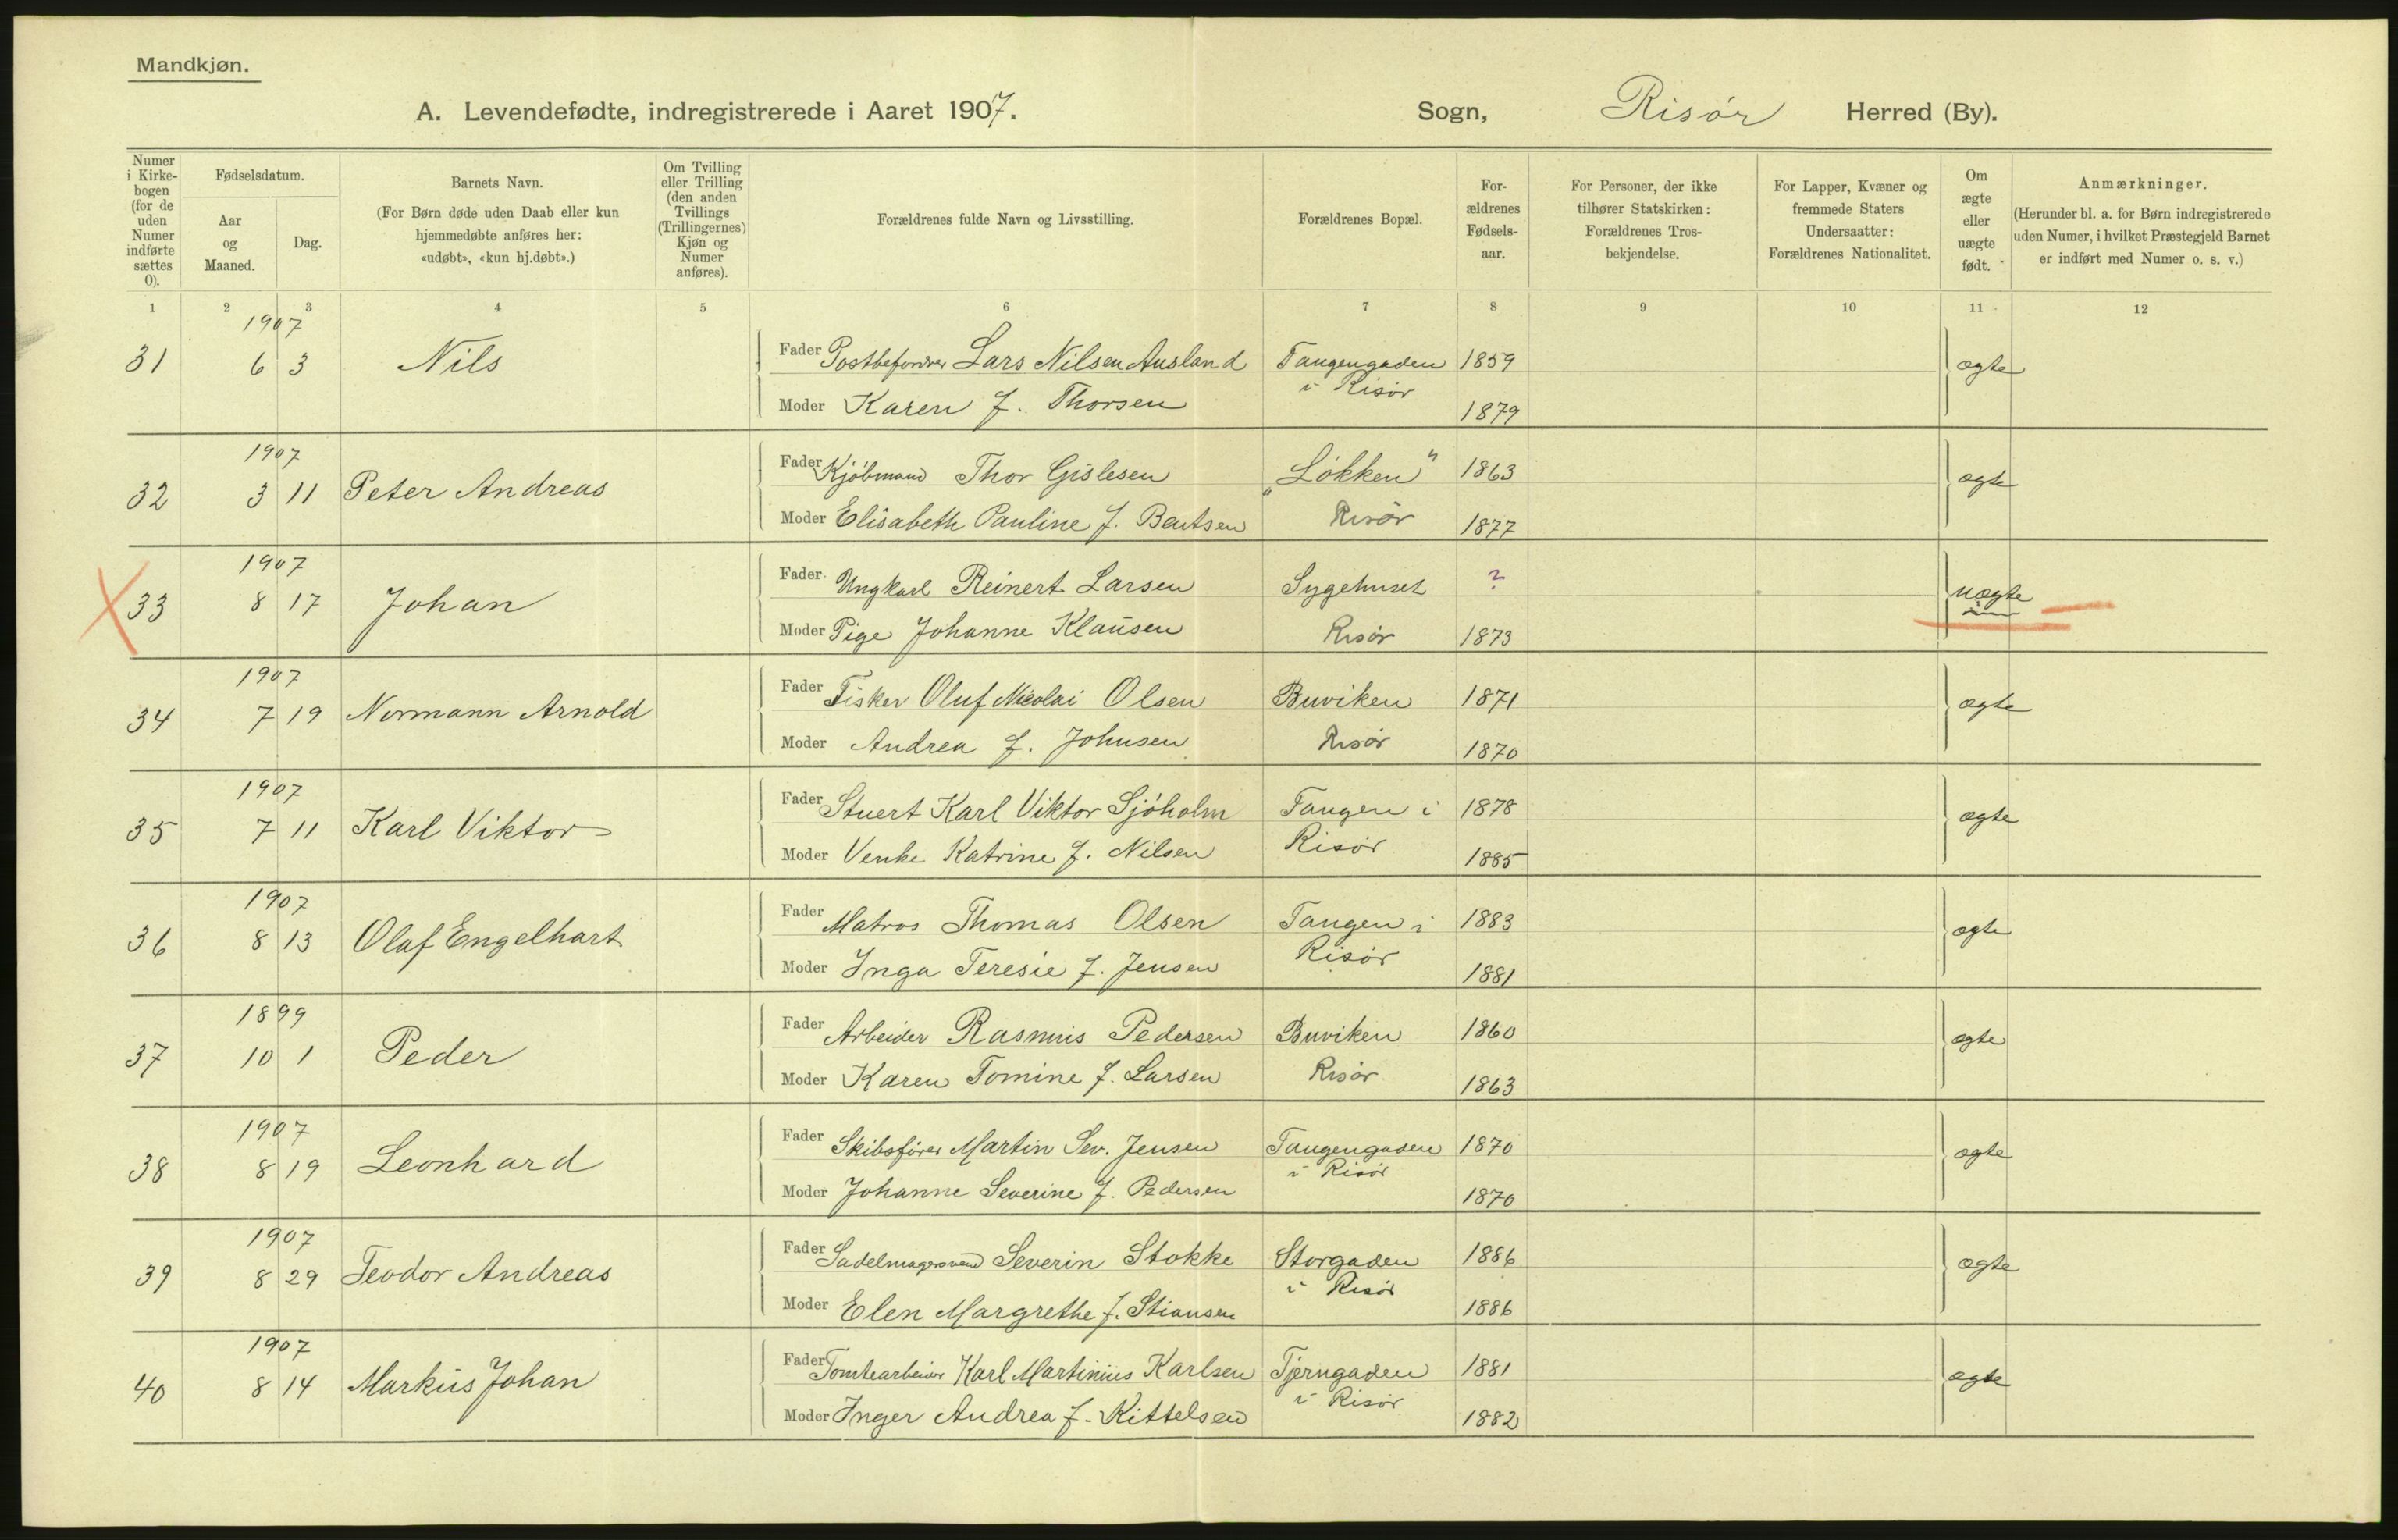 Mandkjøn.
A. Levendefødte, indregistrerede i Aaret 1907. Sogn, Risør Herred (By).
Numer i Kirke-bogen (for de uden Numer indførte sættes 0).
Fødselsdatum.
Aar og Maaned.
Dag.
Barnets Navn.
(For Børn døde uden Daab eller kun
hjemmedøbte anføres her:
«udøbt», «kun hj.døbt».)
Om Tvilling
eller Trilling
(den anden
Tvillings
(Trillingernes)
Kjøn og
Numer
anføres).
Forældrenes fulde Navn og Livsstilling.
Forældrenes Bopæl.
For-
ældrenes
Fødsels-
aar.
For Personer, der ikke
tilhører Statskirken:
Forældrenes Tros-
bekjendelse.
For Lapper, Kvæner og
fremmede Staters
Undersaatter:
Forældrenes Nationalitet.
Om
ægte
eller
uægte
født.
Anmærkninger.
(Herunder bl. a. for Børn indregistrerede
uden Numer, i hvilket Præstegjeld Barnet
er indført med Numer o. s. v.)
1 2 3 4 5 6 7 8 9 10 11 12
1907
31 6 3 Nils Fader Postbefordrer Lars Nilsen Ausland Tangengaden 1859 ægte
i Risør
Moder Karen f. Thorsen 1879
1907
32 3 11 Peter Andreas Fader Kjöbmand Thor Gislesen „Løkken" 1863 ægte
Moder Elisabeth Pauline f. Bentsen Risør 1877
1907
33 8 17 Johan Fader Ungkarl Reinert Larsen Sygehuset ? uægte
Moder Pige Johanne Klausen Risør 1873
1907
34 7 19 Normann Arnold Fader Fisker Oluf Nicolai Olsen Buviken 1871 ægte
Moder Andrea f. Johnsen Risør 1870
1907
35 7 11 Karl Viktor Fader Stuert Karl Viktor Sjöholm Tangen i 1878 ægte
Moder Venke Katrine f. Nilsen Risør 1885
1907
36 8 13 Olaf Engelhart Fader Matros Thomas Olsen Tangen i 1883 ægte
Moder Inga Teresie f. Jensen Risør 1881
1899
37 10 1 Peder Fader Arbeider Rasmus Pedersen Buviken 1860 ægte
Moder Karen Tomine f. Larsen Risør 1863
1907
38 8 19 Leonhard Fader Skibsfører Martin Sev. Jensen Tangengaden 1870 ægte
i Risør
Moder Johanne Severine f. Pedersen 1870
1907
39 8 29 Teodor Andreas Fader Sadelmagersvend Severin Stokke Storgaden 1886 ægte
i Risør
Moder Elen Margrethe f. Stiansen 1886
1907
40 8 14 Markus Johan Fader Tomtearbeider Karl Martinius Karlsen Tjerngaden 1881 ægte
i Risør
Moder Inger Andrea f. Kittelsen 1882